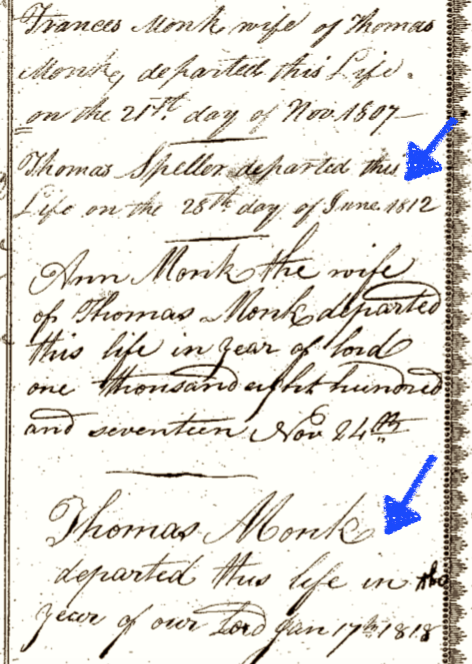 Frances Monk wife of Thomas
Monk, departed this Life
on the 21st. day of Nov. 1807
Thomas Speller departed this
Life on the 28th day of June 1812
Ann Monk the wife
of Thomas Monk departed
this life in year of lord
one thousand eight hundred
and seventeen Nov 24th
Thomas Monk
departed this life in the
year of our Lord Jan 17th 1818